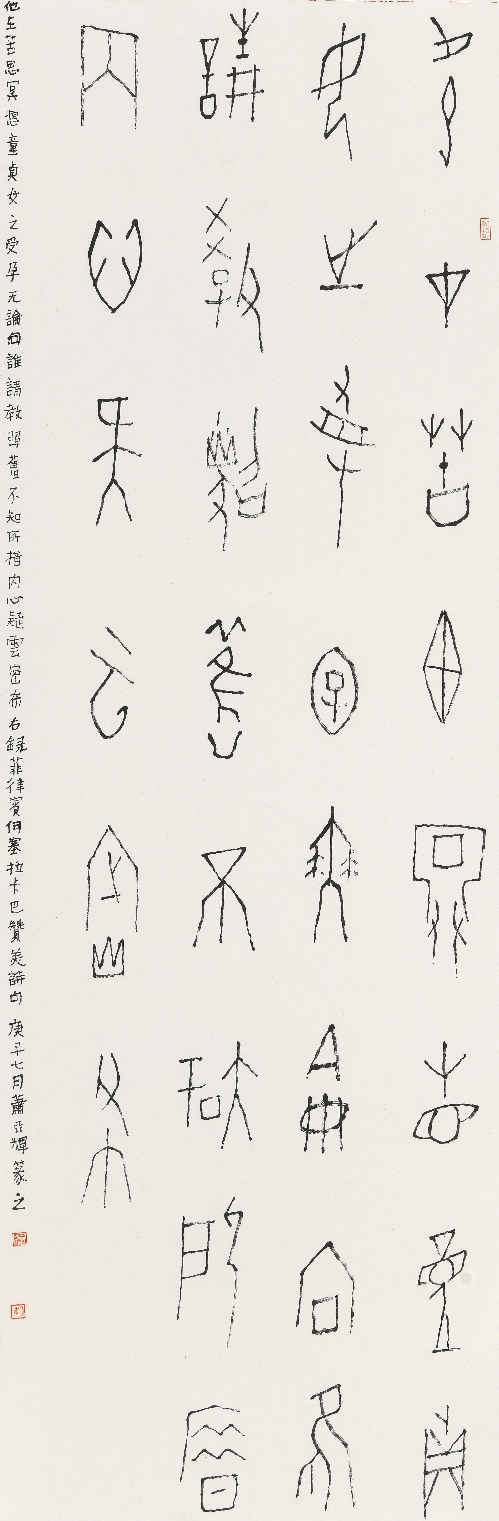 他在苦思冥想童貞
女之受孕無論向誰
請教照舊不知所措
内心疑雲密布
他在苦思冥想童貞女之受孕无論向誰請教照舊不知所措内心疑雲密布右録菲律賓何塞拉卡巴贊美詩句 庚子七月蕭亞輝篆之